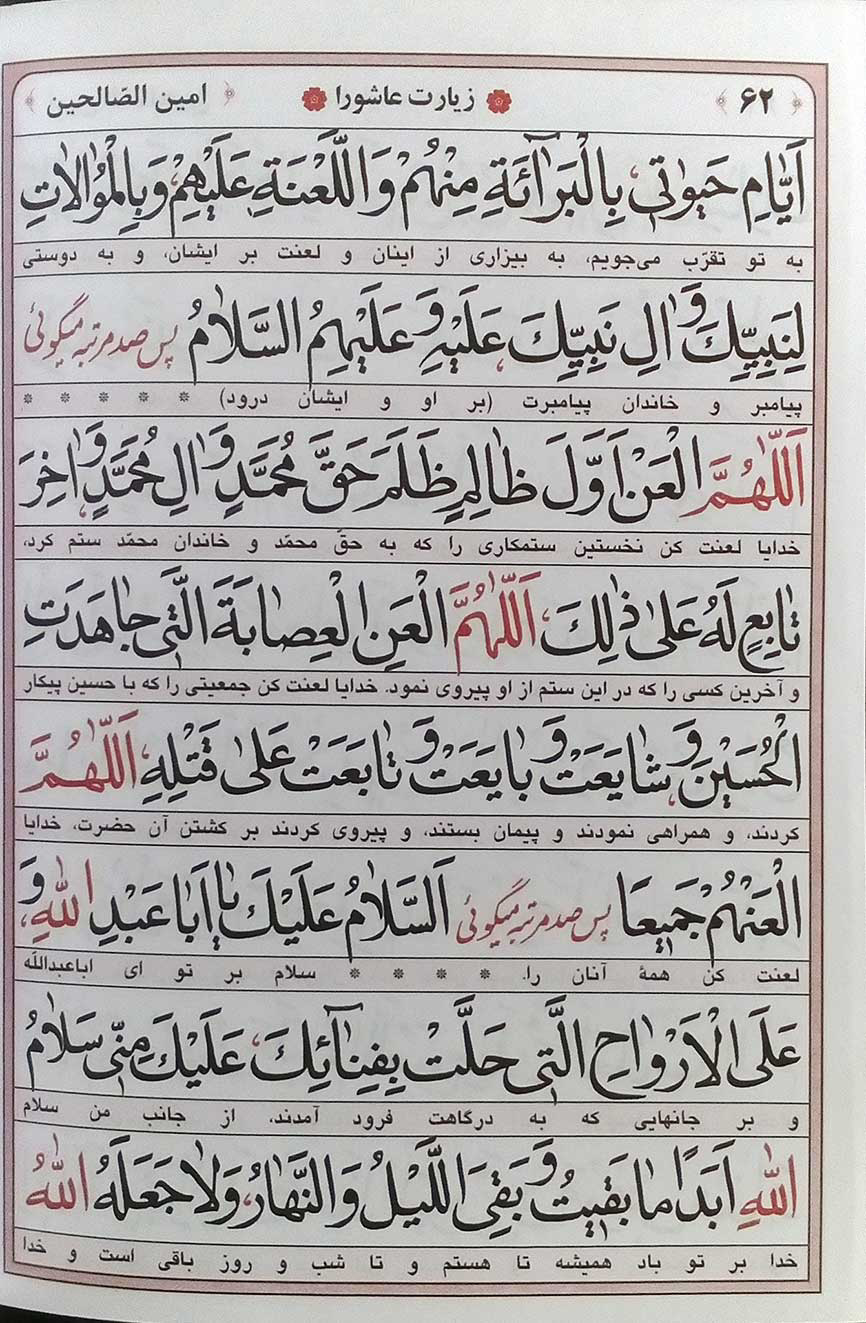 ۶۲ زیارت عاشورا امین الصّالحین
اَیّٰامِ حَیٰوتی، بِالْبَرٰآئَةِ مِنْهُمْ وَاللَّعْنَةِ عَلَیْهِمْ، وَبِالْمُوٰالٰاتِ
به تو تقرّب می‌جویم، به بیزاری از اینان و لعنت بر ایشان، و به دوستی
لِنَبِیِّكَ وَاٰلِ نَبِیِّكَ، عَلَیْهِ وَ عَلَیْهِمُ السَّلٰامُ پس صد مرتبه میگوئی
پیامبر و خاندان پیامبرت (بر او و ایشان درود) * * * * *
اَللّٰهُمَّ الْعَنْ اَوَّلَ ظٰالِمٍ ظَلَمَ حَقَّ مُحَمَّدٍ وَاٰلِ مُحَمَّدٍ، وَاٰخِرَ
خدایا لعنت کن نخستین ستمکاری را که به حقّ محمّد و خاندان محمّد ستم کرد،
تٰابِعٍ لَهُ عَلیٰ ذٰلِكَ، اَللّٰهُمَّ الْعَنِ الْعِصٰابَةَ الَّتی جٰاهَدَتِ
و آخرین کسی را که در این ستم از او پیروی نمود. خدایا لعنت کن جمعیتی را که با حسین پیکار
الْحُسَیْنَ، وَ شٰایَعَتْ وَ بٰایَعَتْ وَ تٰابَعَتْ عَلیٰ قَتْلِهِ، اَللّٰهُمَّ
کردند، و همراهی نمودند و پیمان بستند، و پیروی کردند بر کشتن آن حضرت، خدایا
الْعَنْهُمْ جَمیعًا پس صد مرتبه میگوئی اَلسَّلٰامُ عَلَیْكَ یٰا اَبٰا عَبْدِ اللّٰهِ، وَ
لعنت کن همهٔ آنان را. * * * * سلام بر تو ای اباعبدالله
عَلَی الْاَرْوٰاحِ الَّتی حَلَّتْ بِفِنٰآئِكَ، عَلَیْكَ مِنّی سَلٰامُ
و بر جانهایی که به درگاهت فرود آمدند، از جانب من سلام
اللّٰهِ اَبَدًا مٰا بَقیتُ وَ بَقِیَ اللَّیْلُ وَالنَّهٰارُ، وَلٰا جَعَلَهُ اللّٰهُ
خدا بر تو باد همیشه تا هستم و تا شب و روز باقی است و خدا